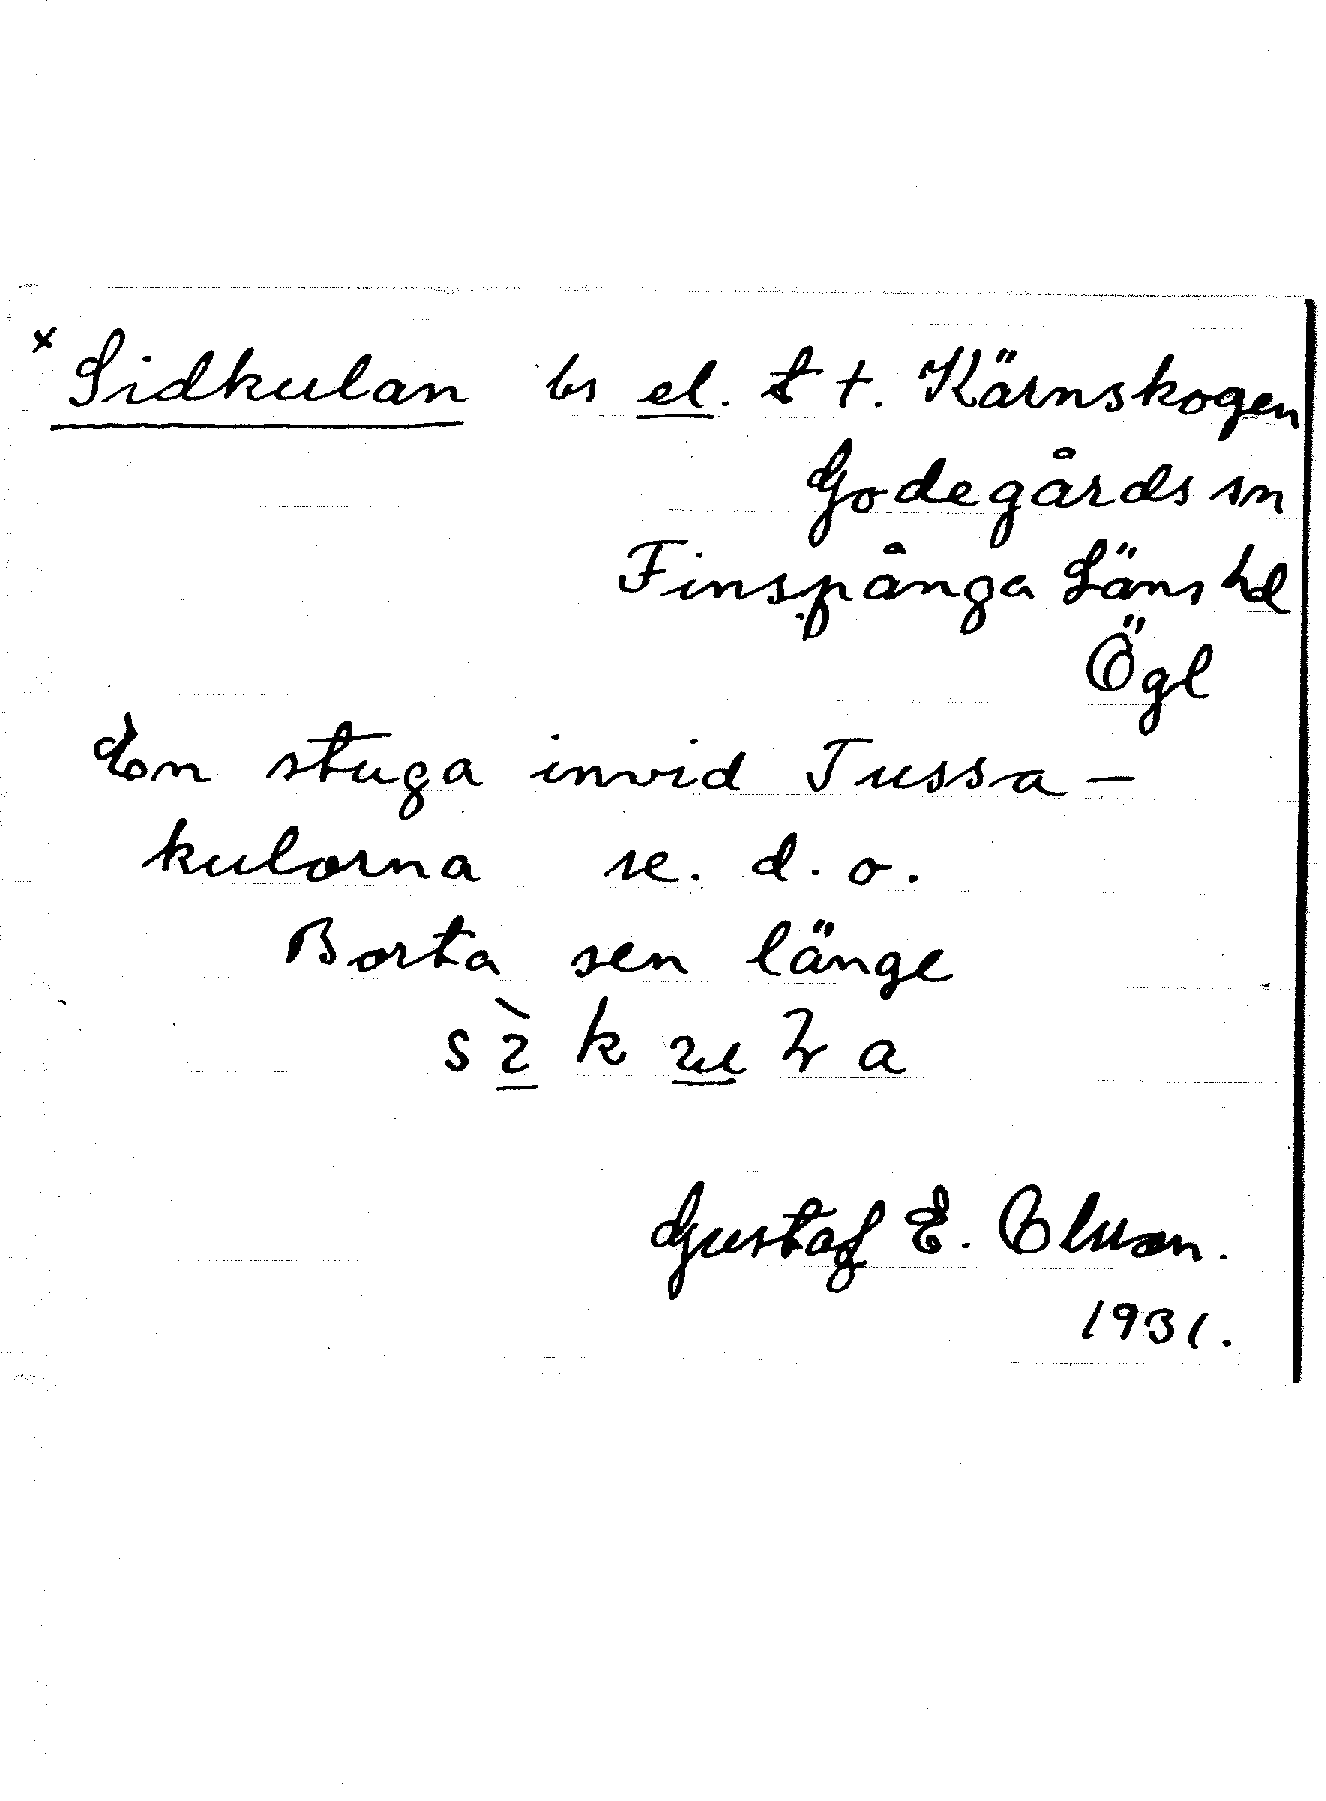 x Sidkulan bs el. t t. Kärnskogen
Godegårds sn
Finspånga Läns hd
Ögl
En stuga invid Tussa-
kulorna se. d. o.
Borta sen länge
Gustaf E. Olsson.
1931.